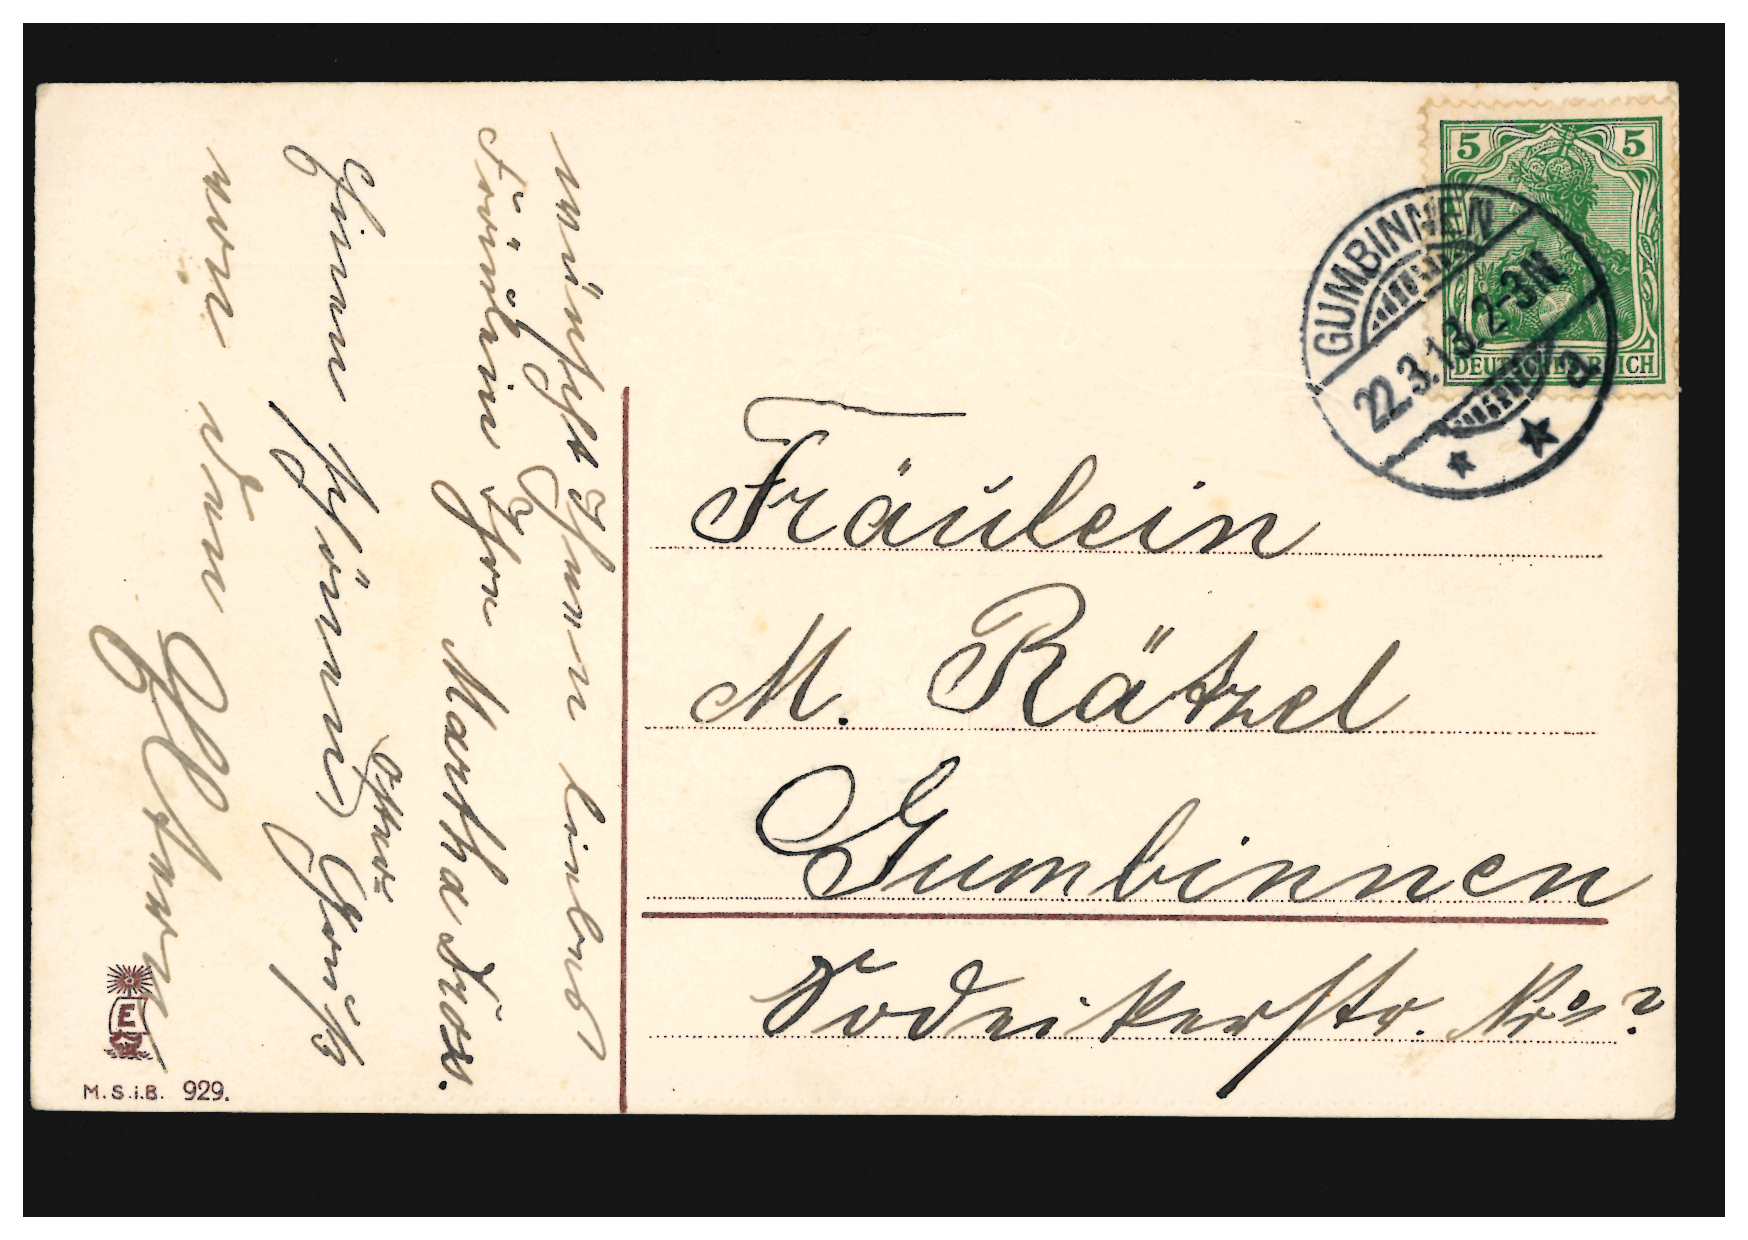 5 5
DEUTSCHES REICH
GUMBINNEN
22.3.13. 2-3N
a
wünscht Ihnen liebes
Fräulein Ihre Martha
Einen schönen Oster Gruß
von dem
Fräulein
M. Rätzel
Gumbinnen
Sodeikerstr. No ?
E
M.S.i.B. 929.